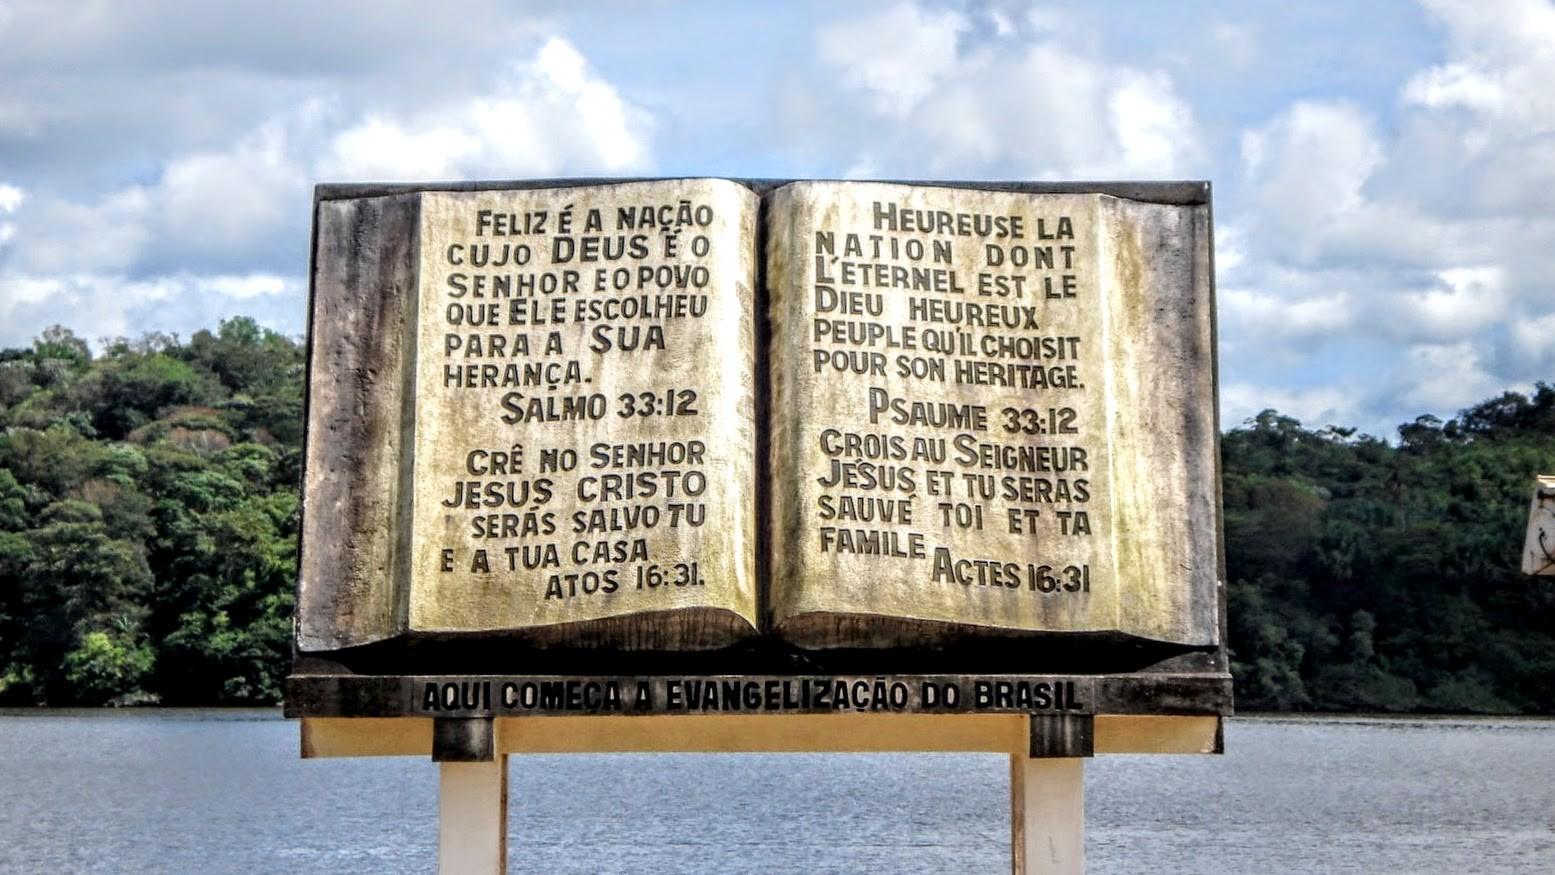 FELIZ É A NAÇÃO
CUJO DEUS É O
SENHOR E O POVO
QUE ELE ESCOLHEU
PARA A SUA
HERANÇA.
SALMO 33:12
CRÊ NO SENHOR
JESUS CRISTO
SERÁS SALVO TU
E A TUA CASA
ATOS 16:31.
HEUREUSE LA
NATION DONT
L'ÉTERNEL EST LE
DIEU HEUREUX
PEUPLE QU'IL CHOISIT
POUR SON HERITAGE.
PSAUME 33:12
CROIS AU SEIGNEUR
JÉSUS ET TU SERAS
SAUVÉ TOI ET TA
FAMILE
ACTES 16:31
AQUI COMEÇA A EVANGELIZAÇÃO DO BRASIL